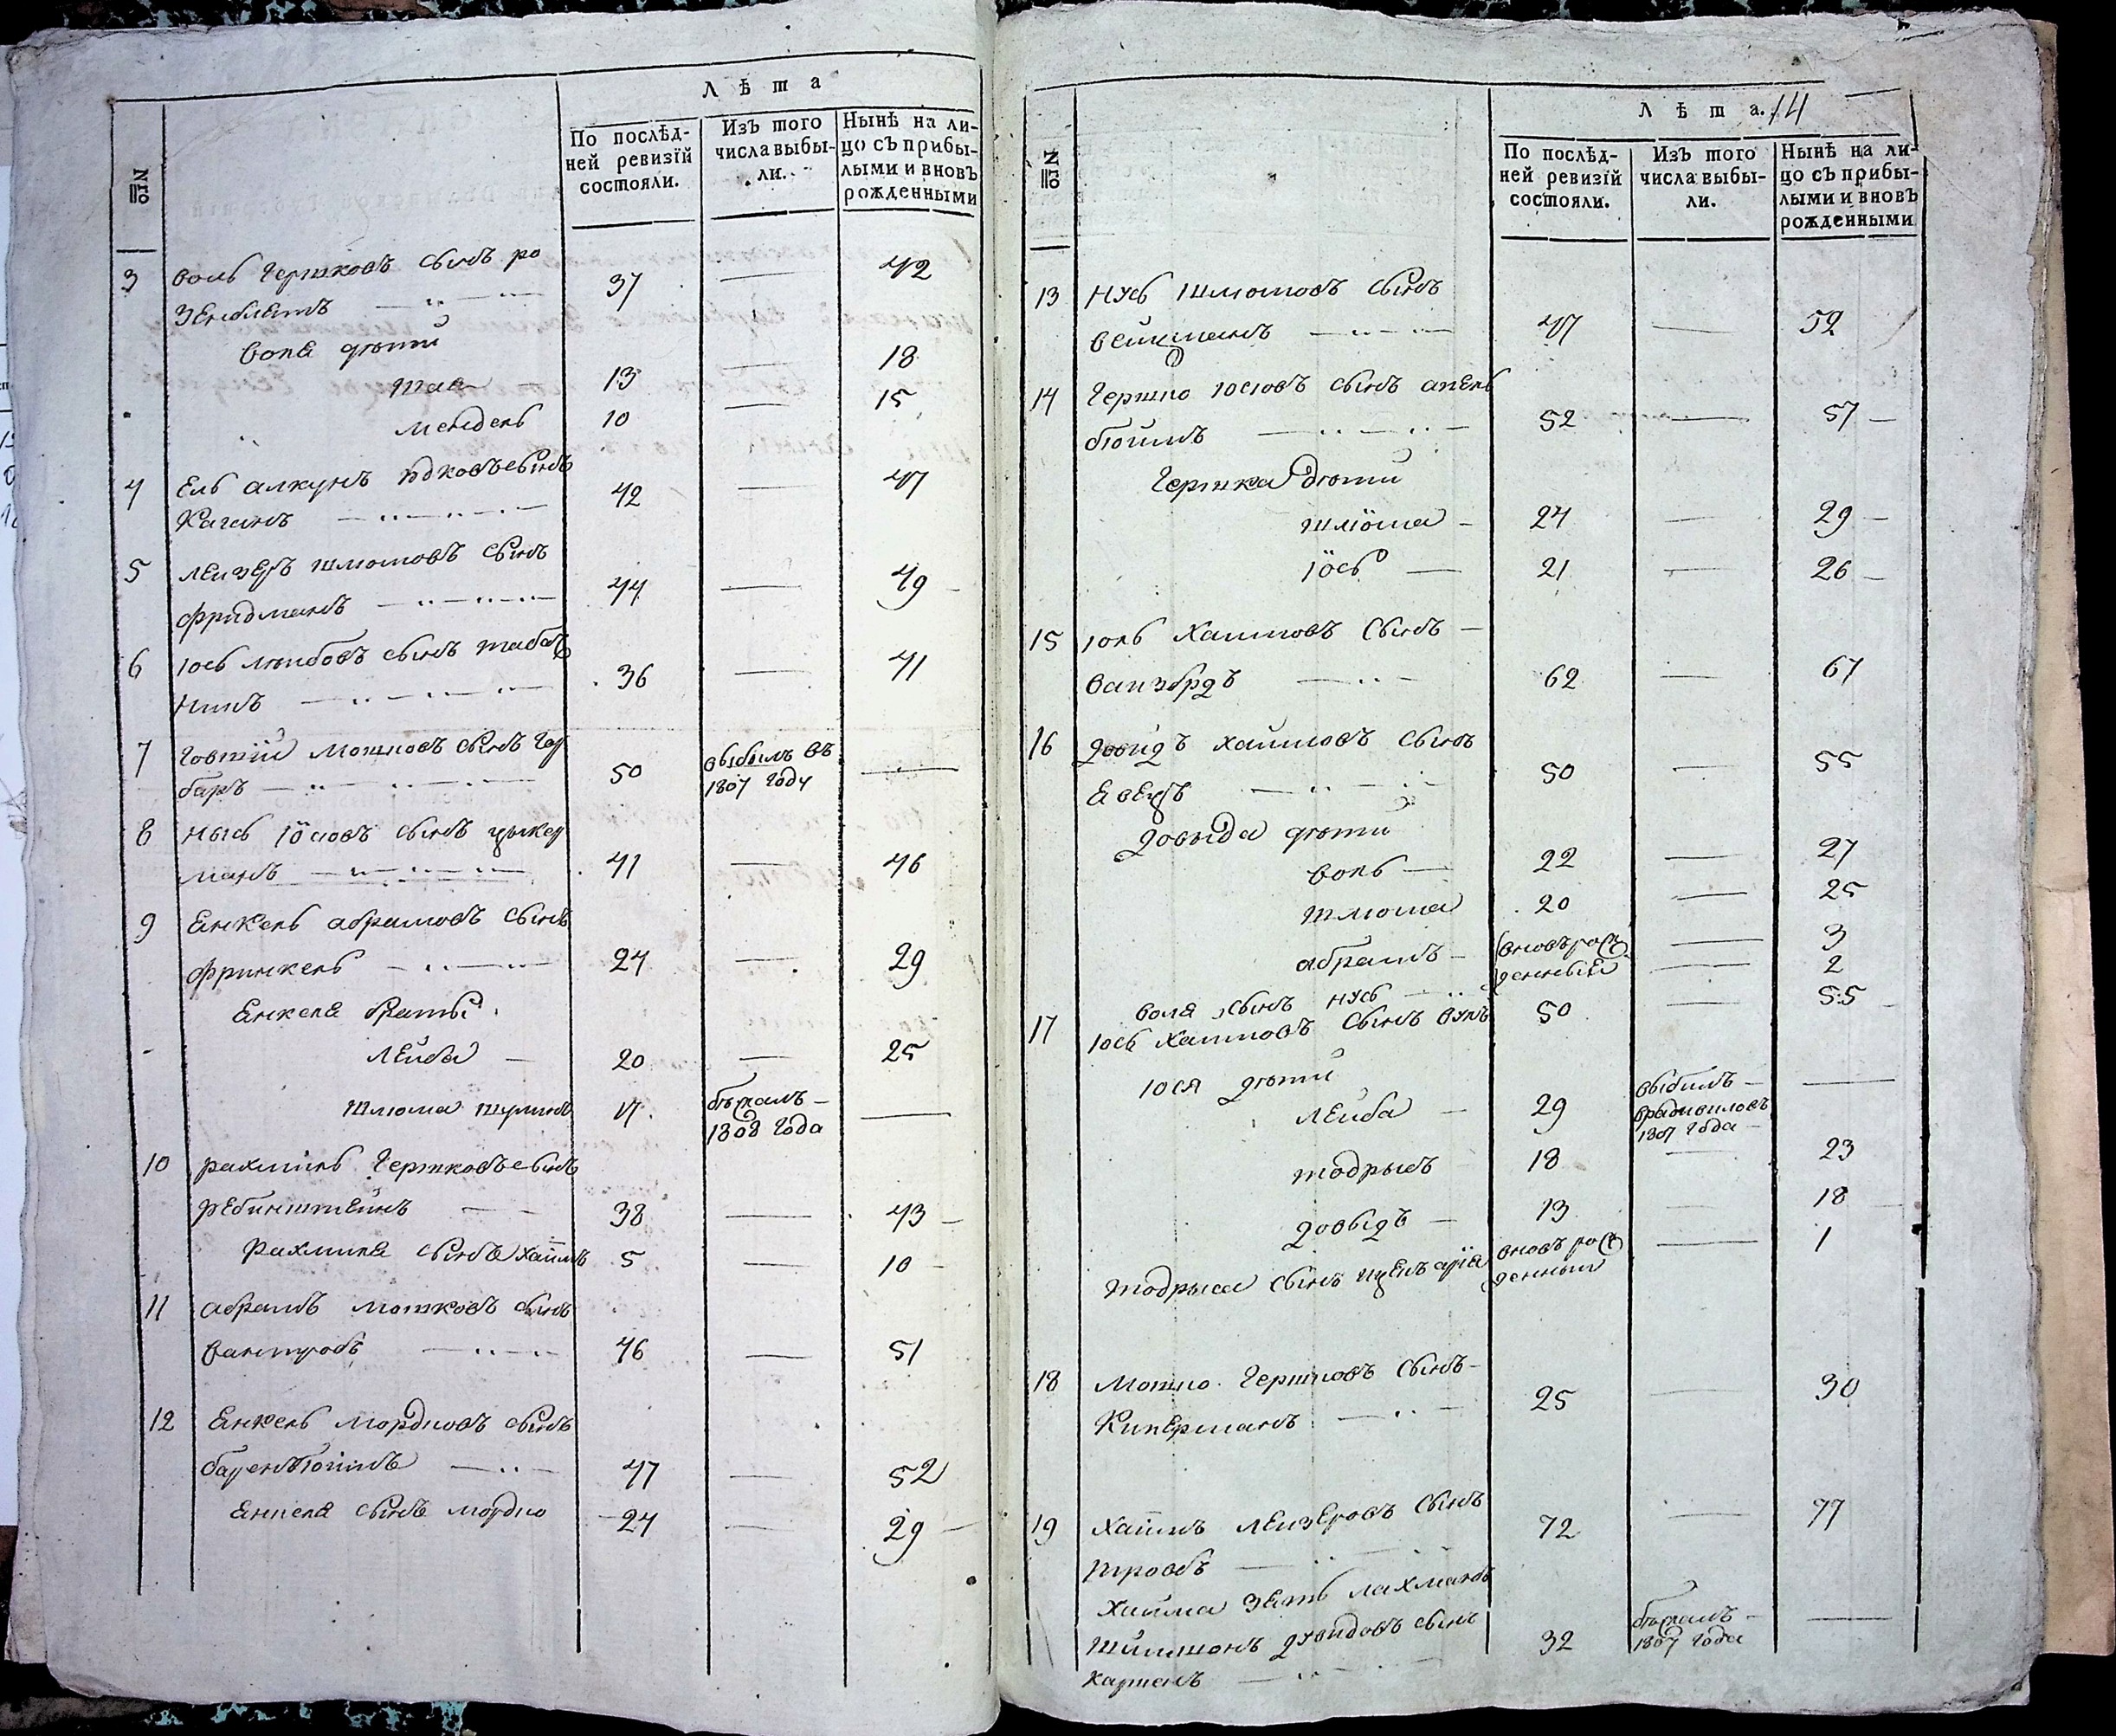 Лѣта
№
По послѣд-
ней ревизїй
состояли.
Изъ того
числа выбы-
ли.
Нынѣ на ли-
цо съ прибы-
лыми и вновъ
рожденными
3 Воль Гершковъ сынъ ро
зенблетъ 37 — 42
Воля дѣти
13 — 18
Мендель 10 — 15
4 Ель Сынъ
Каганъ 42 — 47
5 Лейзеръ Шлемовъ Сынъ
Фридманъ 44 — 49
6 Іось Лейбовъ сынъ табач
никъ 36 — 41
7 Мошковъ сынъ Гер
баръ 50 выбылъ въ —
1807 году
8 Нысь Іосіовъ сынъ цукер
манъ 41 — 46
9 Янкель абрамовъ Сынъ
Френкель 24 — 29
Янкеля братьѣ
Лейба — 20 — 25
Шлема 17 бѣжалъ —
1808 года
10 рахмиль Гершковъ сынъ
Ребинштейнъ 38 — 43
Рахмиля сынъ Хаимъ 5 — 10
11 абрамъ Мошковъ сынъ
46 — 51
12 Янкель Мордковъ сынъ
47 — 52
Янкеля сынъ Мордко 24 — 29
Лѣта. 14
№
По послѣд-
ней ревизїй
состояли.
Изъ того
числа выбы-
ли.
Нынѣ на ли-
цо съ прибы-
лыми и вновъ
рожденными
13 Нусь Шлемовъ сынъ
Вейцманъ 47 — 52
14 Гершко Іосіовъ сынъ апель
боимъ 52 — 57
Гершка дѣти
Шлїома — 24 — 29
Іось — 21 — 26
15 Іоль Хаимовъ Сынъ —
62 — 67
16 Довидъ хаимовъ сынъ
50 — 55
Довыда дѣти
Воль — 22 — 27
Шлема 20 — 25
абрамъ — вновъ рож — 3
воля сынъ нусь денныѣ — 2
17 Іось Хаимовъ Сынъ 50 — 55
Іося дѣти
Лейба — 29 выбылъ — —
врадивиловъ
1807 года —
тодрысъ 18 — 23
Довыдъ — 13 — 18
тодрыса сынъ вновъ рож — 1
денный
18 Мошко Гершковъ Сынъ —
Киперманъ 25 — 30
19 Хаимъ Лейзеровъ Сынъ 72 — 77
Хаима зять
сынъ 32 бѣжалъ — —
1807 года